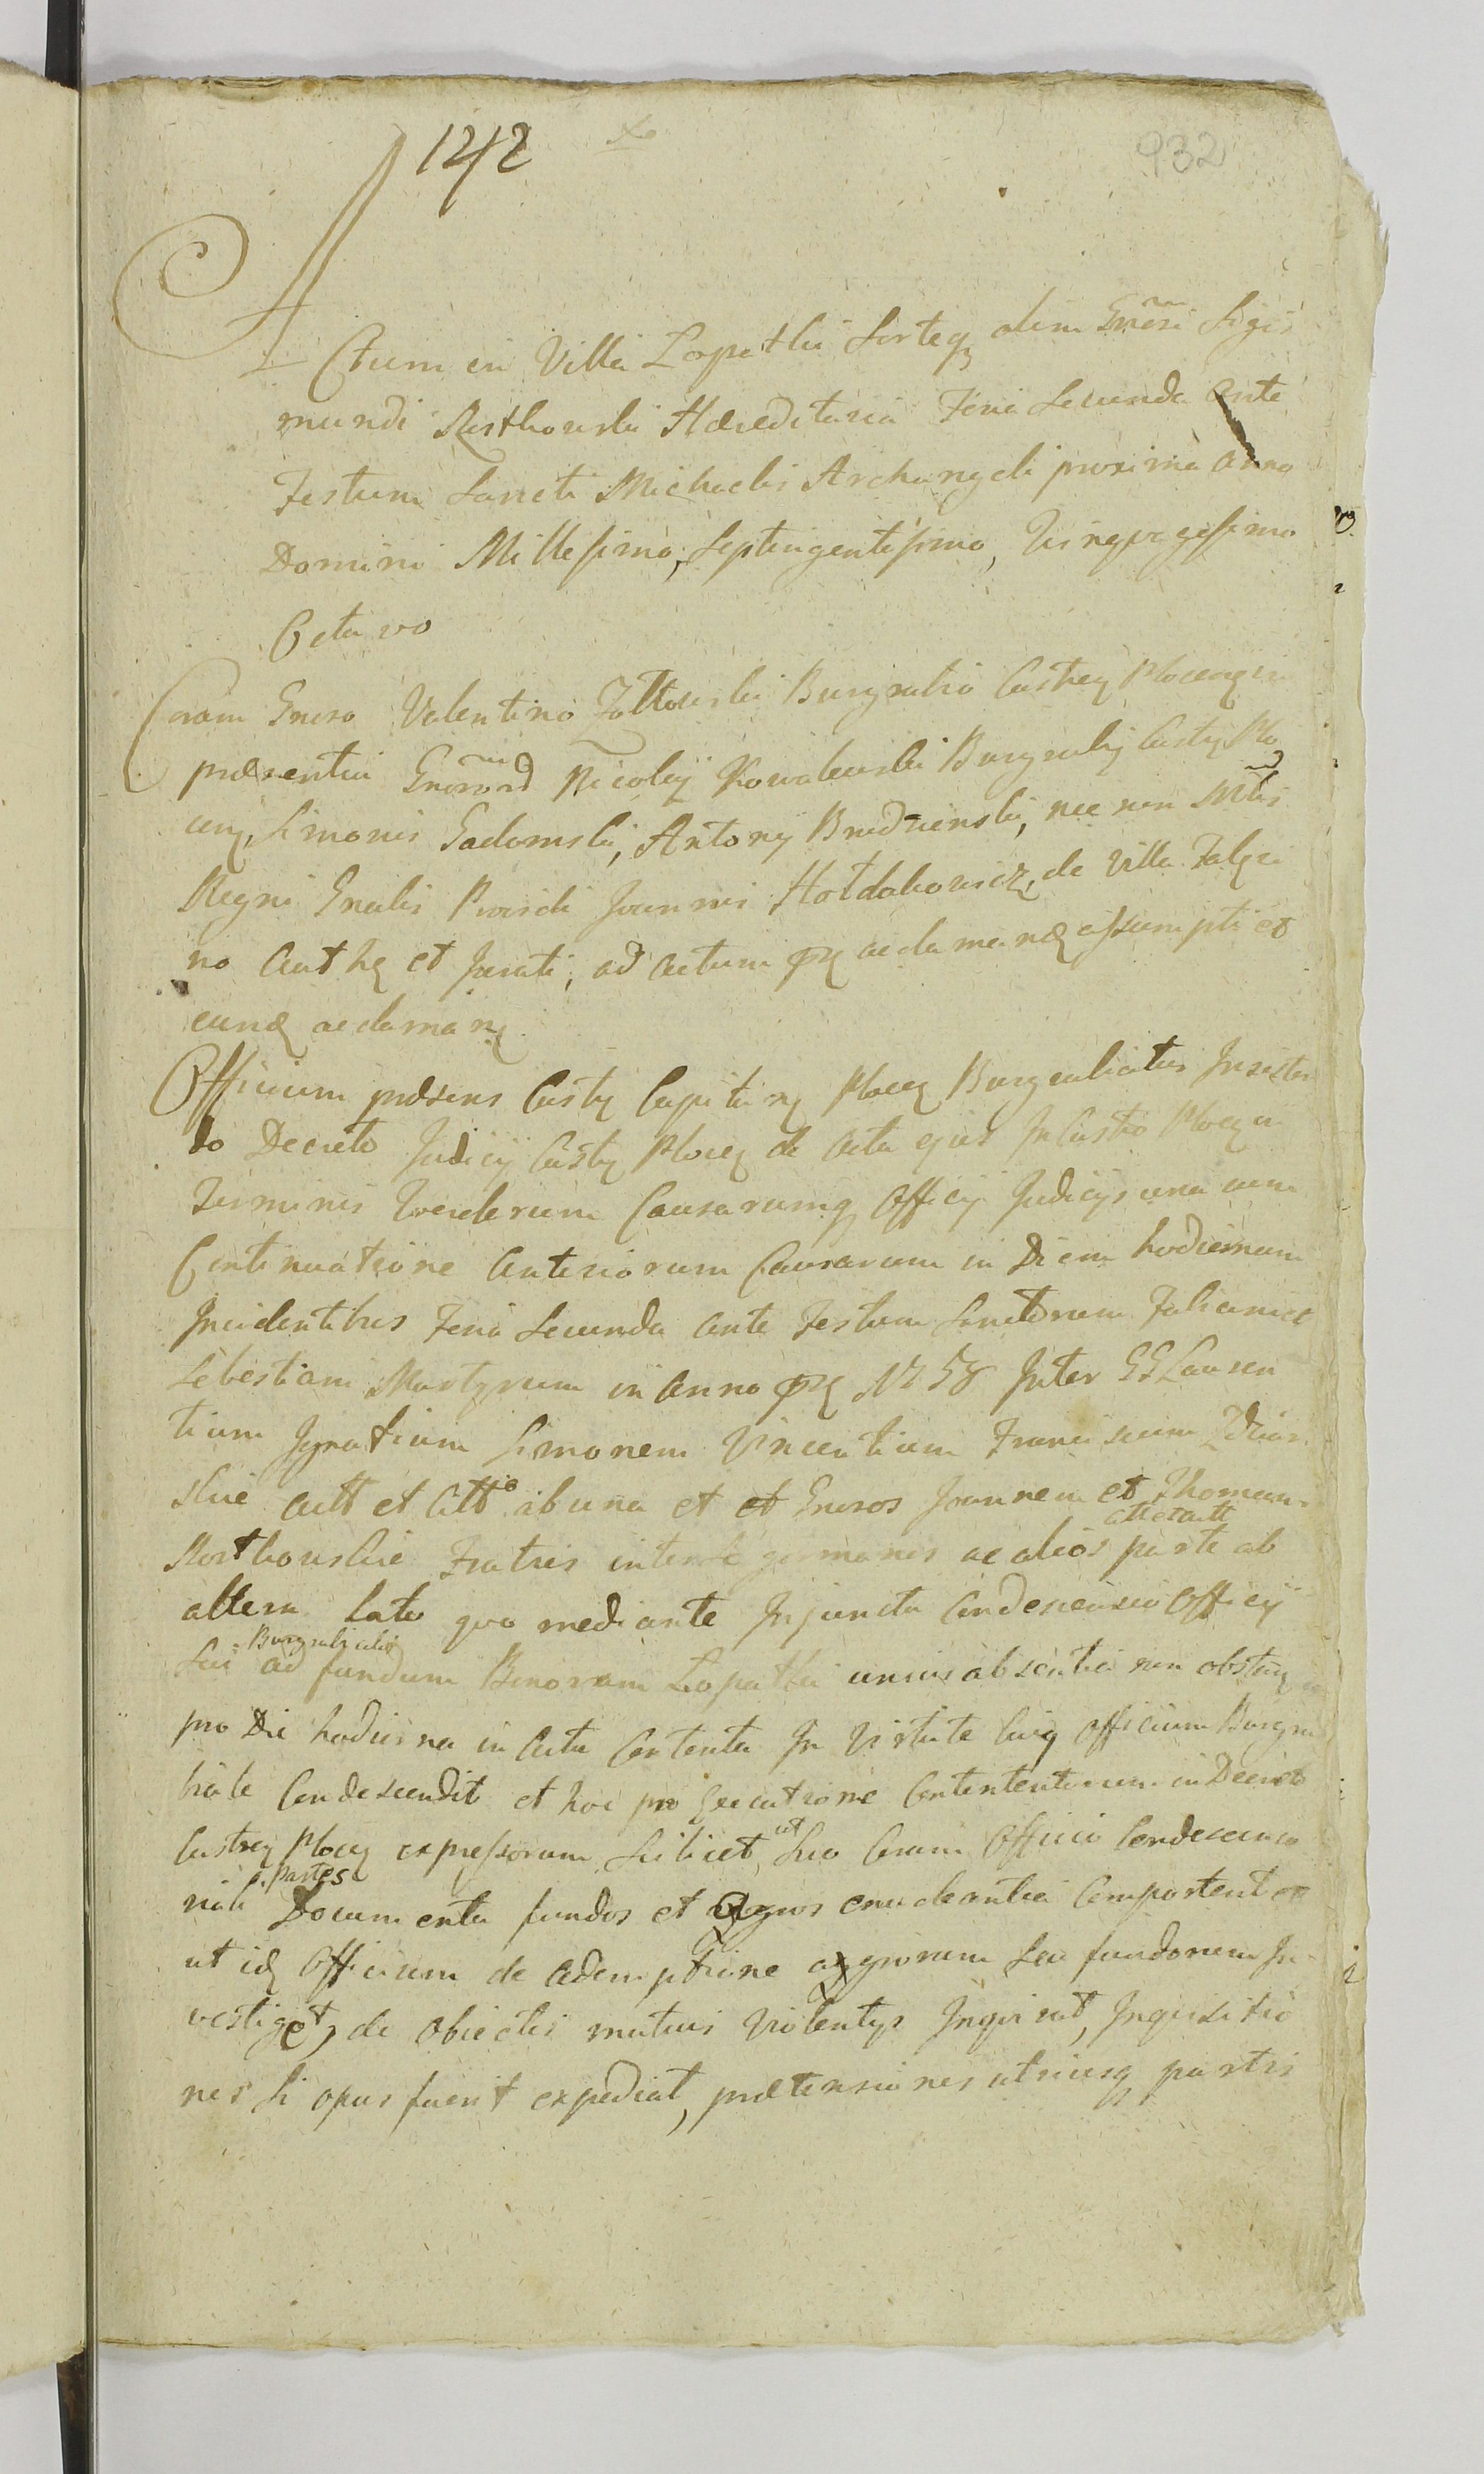 1242
932
Actum in Villa Lopatki Sorteq olim Gnosi Sigis
mundi Rosthowski Hæreditaria Feria Secunda ante
Festum Sancti Michaelis Archangeli proxima anno
Domini Millesimo, Septingentesimo,
Octavo
Coram Gneroso Valentino Zołtowski Burgrabio Castreq Plocenq in
præsentia Gnerord Nicolaij Kowalewski Burgrabij Castrq Plo
cenq, Simonis Gadomski, Antonij Brudzienski, nec non Mlis
Regni Gnralis Provide Joannis Hotdakowicz, de Villa
no Auth et Jurati, ad actum acclamanq assumpti et
eund acclamanq
Officium præsens Castrq Capitanq Plocq Burgrabiatus Insisten
do Decreto Judicij Castrq Plocq de actu ejus In Castro Plocq in
Terminis Querelarum Causarumq Officij Judicijs una cum
Continuatione Anteriorum Causarum in Diem hodiernam
Incidentibus Feria Secunda ante Festum Sanctorum Fabiani et
Sebestiani Martyrum in Anno 1758 Inter GG Lauren
tium Ignatium Simonem Vincentium Franciscum
skie Actt et Citt ab una et et Gnerosos Joannem et Thomam
Rosthowskie Fratres inter se germanos ac alios actt et citt parte ab
altera Lato quo mediante Injuncta Condescensio Officij
Sui Burgrabialis ad fundum Bonorum Lopatki unius absentia non obstanq
pro Die hodierna in Actu Contenta In Virtute cuiq Officium Burgra
biale Condescendit et hoc pro Executione Contententorum in Decreto
Castreq Plocq expressorum Scilicet ut Suo Coram Officio Condescenso
riali Partes Documenta fundos et agros enucleantia Comportent et
ut idq Officium de Ademptione agrorum Seu fundorum In
vestiget, de obiectis mutuis Violentijs Inquirat, Inquisitio
nes si opus fuerit expediat, prætensiones utriusq partis